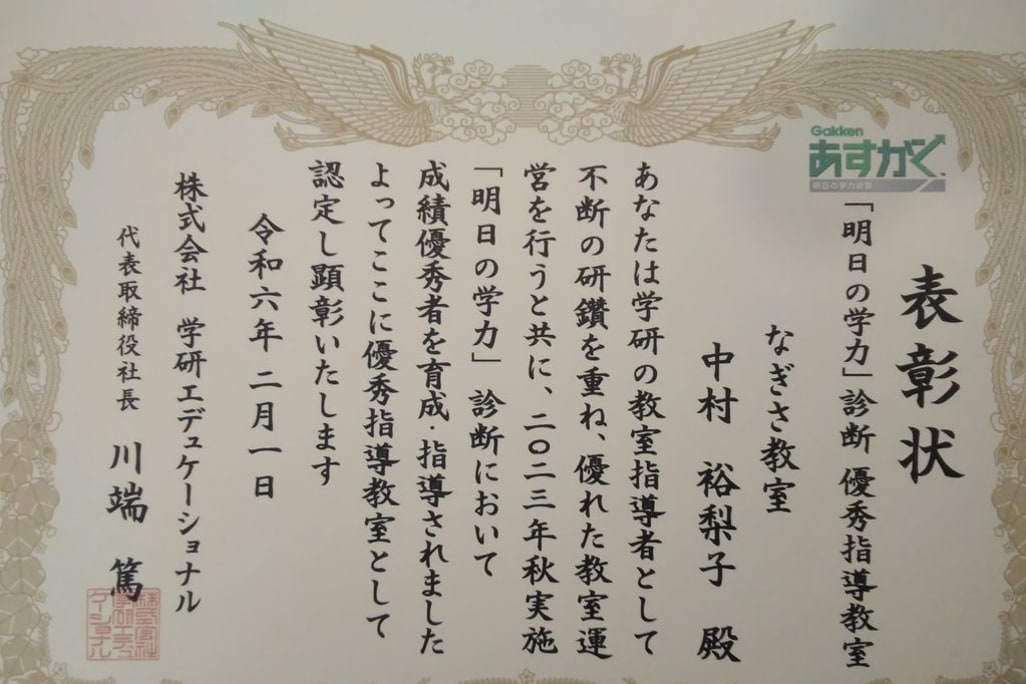 表彰状
Gakken
あすがく
「明日の学力」診断 優秀指導教室
なぎさ教室
中村 裕梨子 殿
あなたは学研の教室指導者として
不断の研鑽を重ね、優れた教室運
営を行うと共に、二〇二三年秋実施
「明日の学力」診断において
成績優秀者を育成・指導されました
よってここに優秀指導教室として
認定し顕彰いたします
令和六年 二月一日
株式会社 学研エデュケーショナル
代表取締役社長 川端 篤